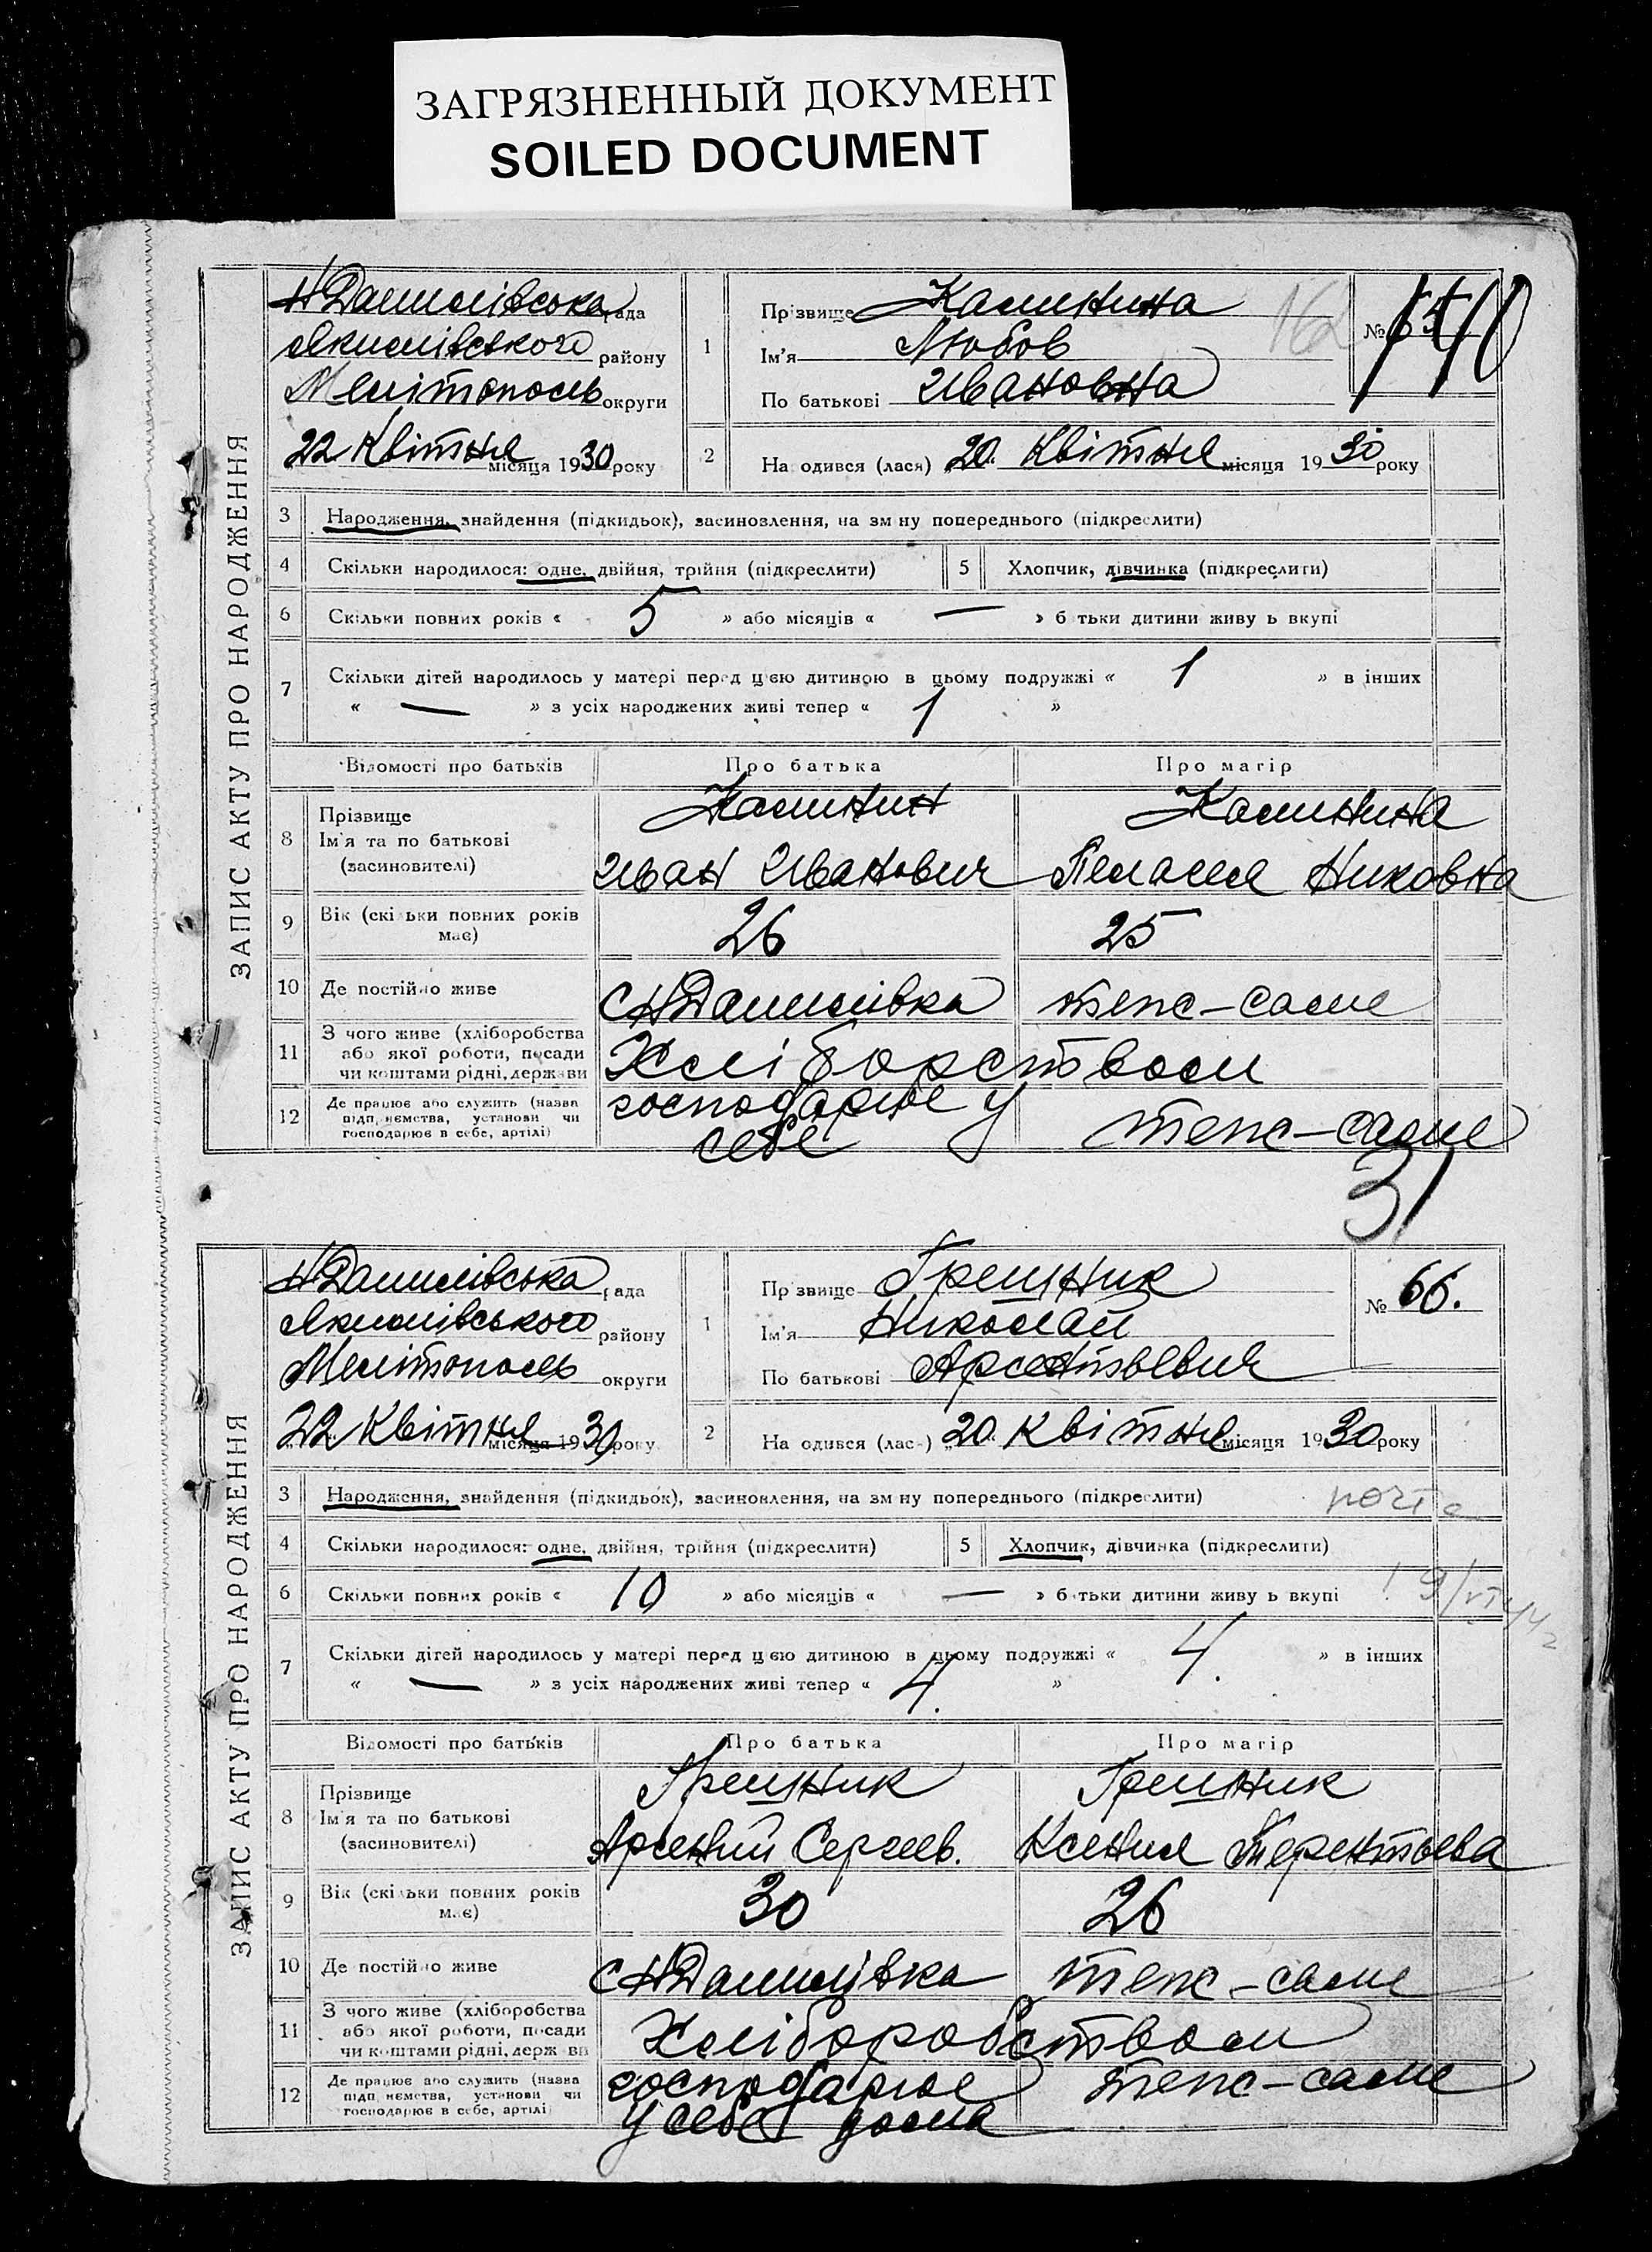 ЗАГРЯЗНЕННЫЙ ДОКУМЕНТ
SOILED DOCUMENT
ЗАПИС АКТУ ПРО НАРОДЖЕННЯ
Н Данилівська рада
Якимівського району
Мелітополь округи
22 Квітня місяця 1930 року
1
Прізвище Калинина
Ім'я Любов
По батькові Ивановна
162
№
2
На одився (лася) „20" Квітня місяця 1930 року
3 Народження, знайдення (підкидьок), засиновлення, на зм ну попереднього (підкреслити)
4 Скільки народилося: одне, двійня, трійня (підкреслити)
5 Хлопчик, дівчинка (підкреслити)
6 Скільки повних років « 5 » або місяців « — » б тьки дитини живу ь вкупі
7 Скільки дітей народилось у матері перед цією дитиною в цьому подружжі « 1 » в інших
« — » з усіх народжених живі тепер « 1 »
Відомості про батьків Про батька Про матір
8 Прізвище
Ім'я та по батькові
(засиновителі)
Калинин
Иван Иванович
Калинина
Пелагея
9 Вік (скільки повних років має) 26 25
10 Де постійно живе с НДанилівка теж-саме
11 З чого живе (хліборобства
або якої роботи, посади
чи коштами рідні, держави
Хліборством
12 Де працює або служить (назва
підп иємства, установи чи
господарює в себе, артілі)
господарює у
себе
теж-саме
31
ЗАПИС АКТУ ПРО НАРОДЖЕННЯ
Н Данилівська рада
Якимівського району
Мелітополь округи
22 Квітня місяця 1930 року
1
Пр звище Грешник
Ім'я Николай
По батькові Арсентьевич
№ 66.
2
На одився (лас ) „20" Квітня місяця 1930 року
3 Народження, знайдення (підкидьок), засиновлення, на зм ну попереднього (підкреслити)
4 Скільки народилося: одне, двійня, трійня (підкреслити)
5 Хлопчик, дівчинка (підкреслити)
6 Скільки повних років « 10 » або місяців « — » б тьки дитини живу ь вкупі
7 Скільки дітей народилось у матері перед цією дитиною в цьому подружжі « 4. » в інших
« — » з усіх народжених живі тепер « 4. »
Відомості про батьків Про батька Про матір
8 Прізвище
Ім'я та по батькові
(засиновителі)
Грешник
Арсений Сергеев.
Грешник
Ксения Терентьева
9 Вік (скільки повних років має) 30 26
10 Де постійно живе с НДанилівка теж-саме
11 З чого живе (хліборобства
або якої роботи, посади
чи коштами рідні, держ ви
Хліборобством
12 Де працює або служить (назва
підп иємства, установи чи
господарює в себе, артілі
господарює
у себе дома
теж-саме